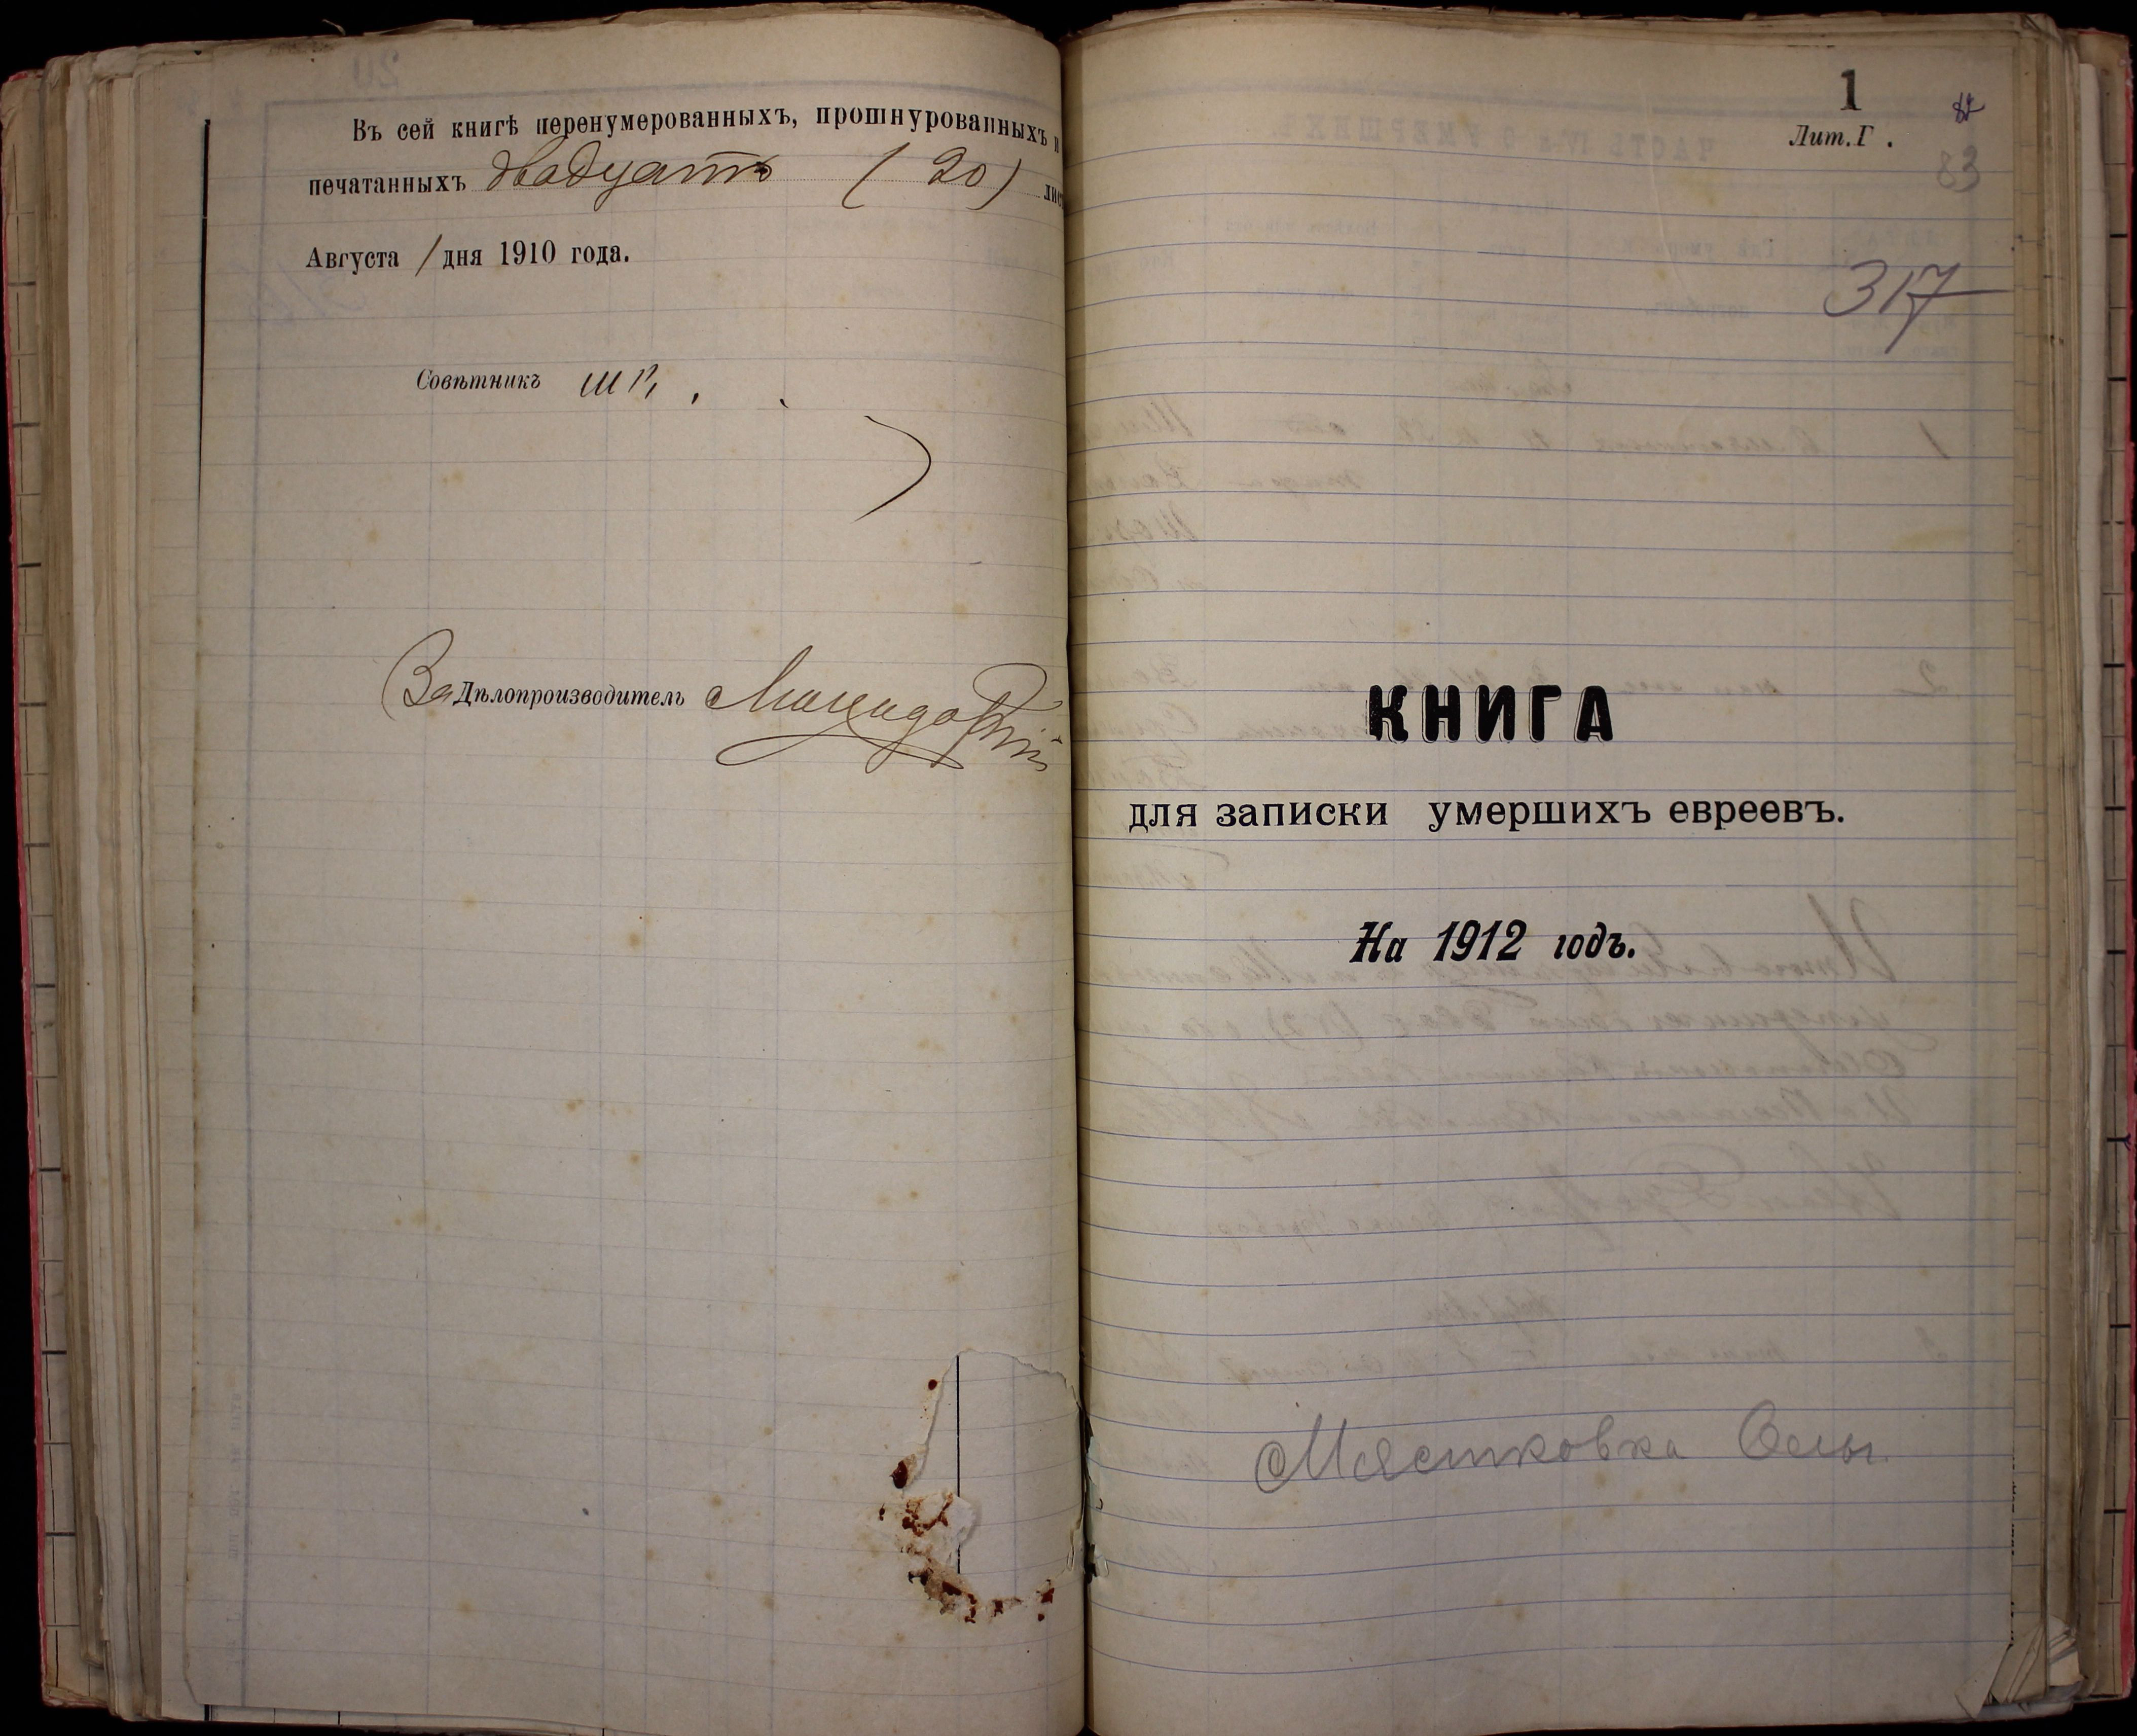 Въ сей книгѣ перенумерованныхъ, прошнурованныхъ и
печатанныхъ двадцать (20) лис
Августа 1 дня 1910 года.
Совѣтникъ
За Дѣлопроизводитель
1
Лит. Г.
83
317
КНИГА
для записки умершихъ евреевъ.
На 1912 годъ.
Мястковка